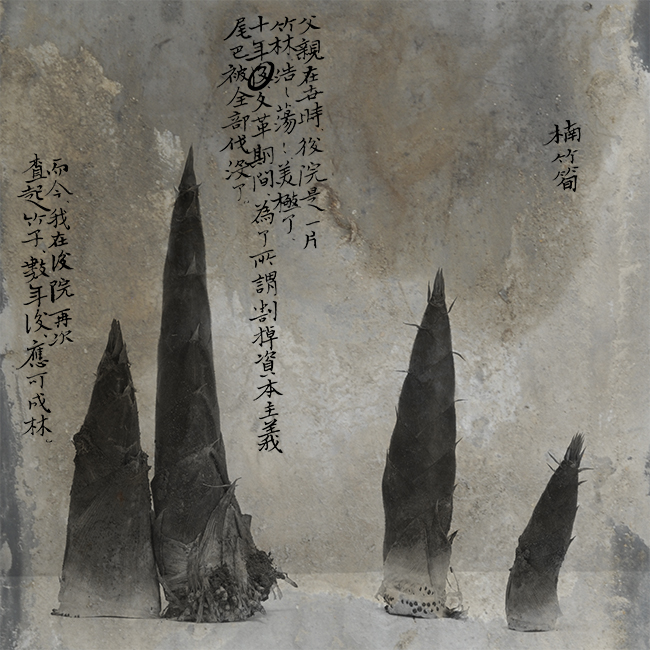 楠竹筍
父親在世時，後院是一片
竹林，浩〻蕩〻美極了。
十年文革期間，為了所謂割掉資本主義
尾巴被全部伐沒了。
而今我在後院再次
起竹子，數年後，應可成林。